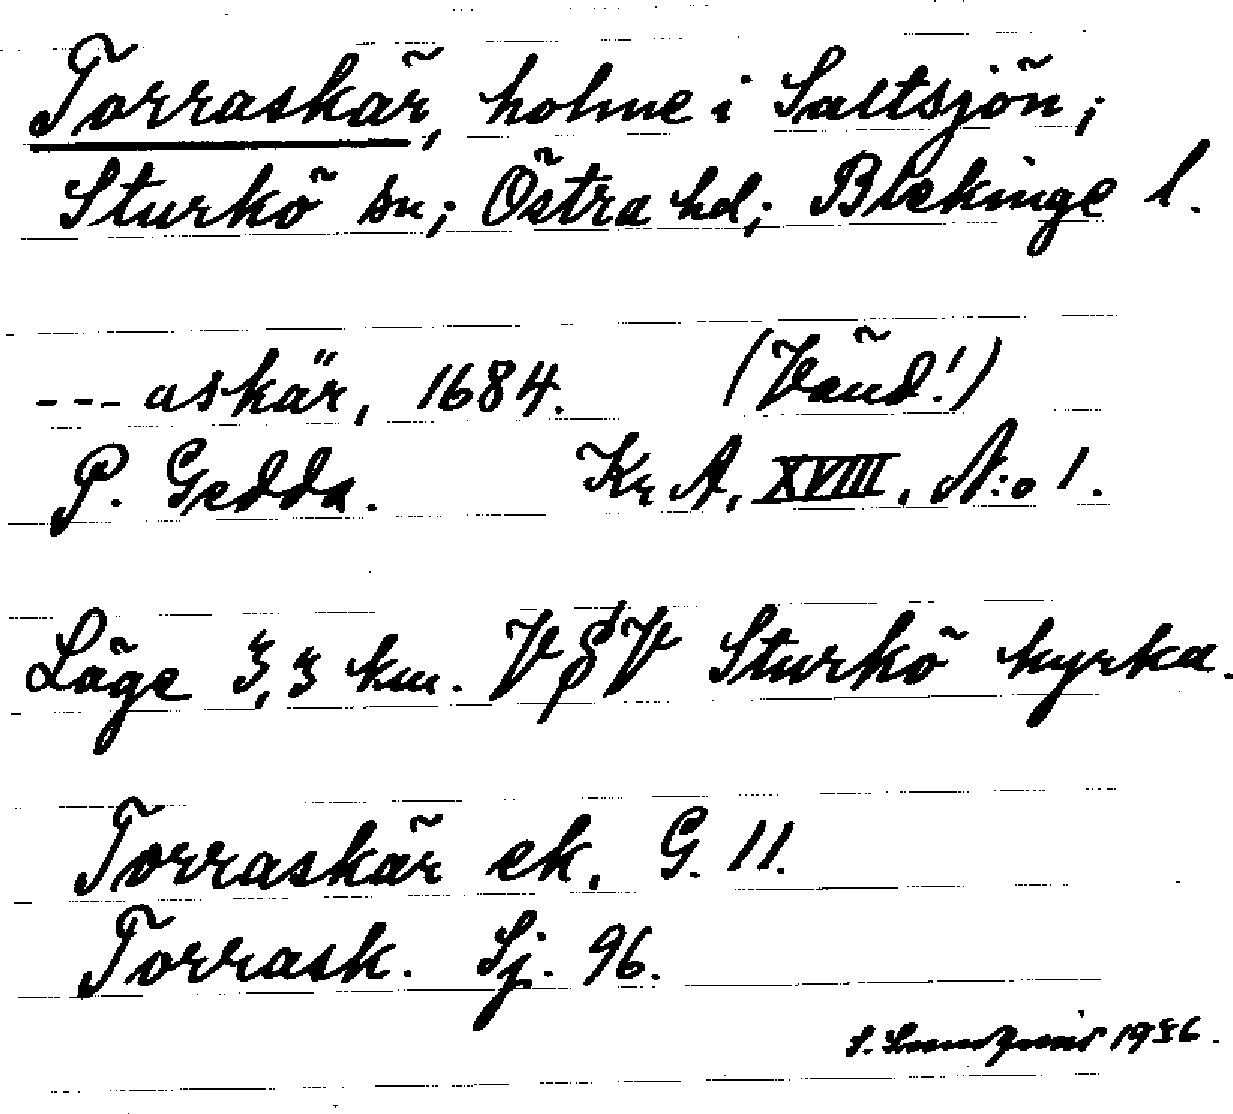 Torraskär, holme i Saltsjön;
Sturkö sn; Östra hd; Blekinge l.
---askär, 1684. (Vänd!)
P. Gedda. Kr A, XVIII, N:o 1.
Läge 3,3 km. VSV Sturkö kyrka.
Torraskär ek, G. 11.
Torrask. Sj. 96.
S. 1936.